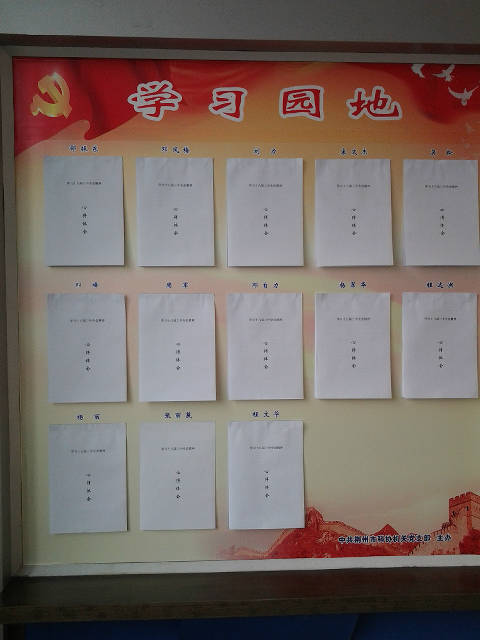 学习园地
学习十八届三中全会精神
心得体会
学习十八届三中全会精神
心得体会
学习十八届三中全会精神
心得体会
学习十八届三中全会精神
心得体会
学习十八届三中全会精神
心得体会
周军
邓自力
学习十八届三中全会精神
心得体会
学习十八届三中全会精神
心得体会
学习十八届三中全会精神
心得体会
学习十八届三中全会精神
心得体会
学习十八届三中全会精神
心得体会
杨丽
张丽蓉
程文华
学习十八届三中全会精神
心得体会
学习十八届三中全会精神
心得体会
学习十八届三中全会精神
心得体会
中共荆州市科协机关党支部 主办